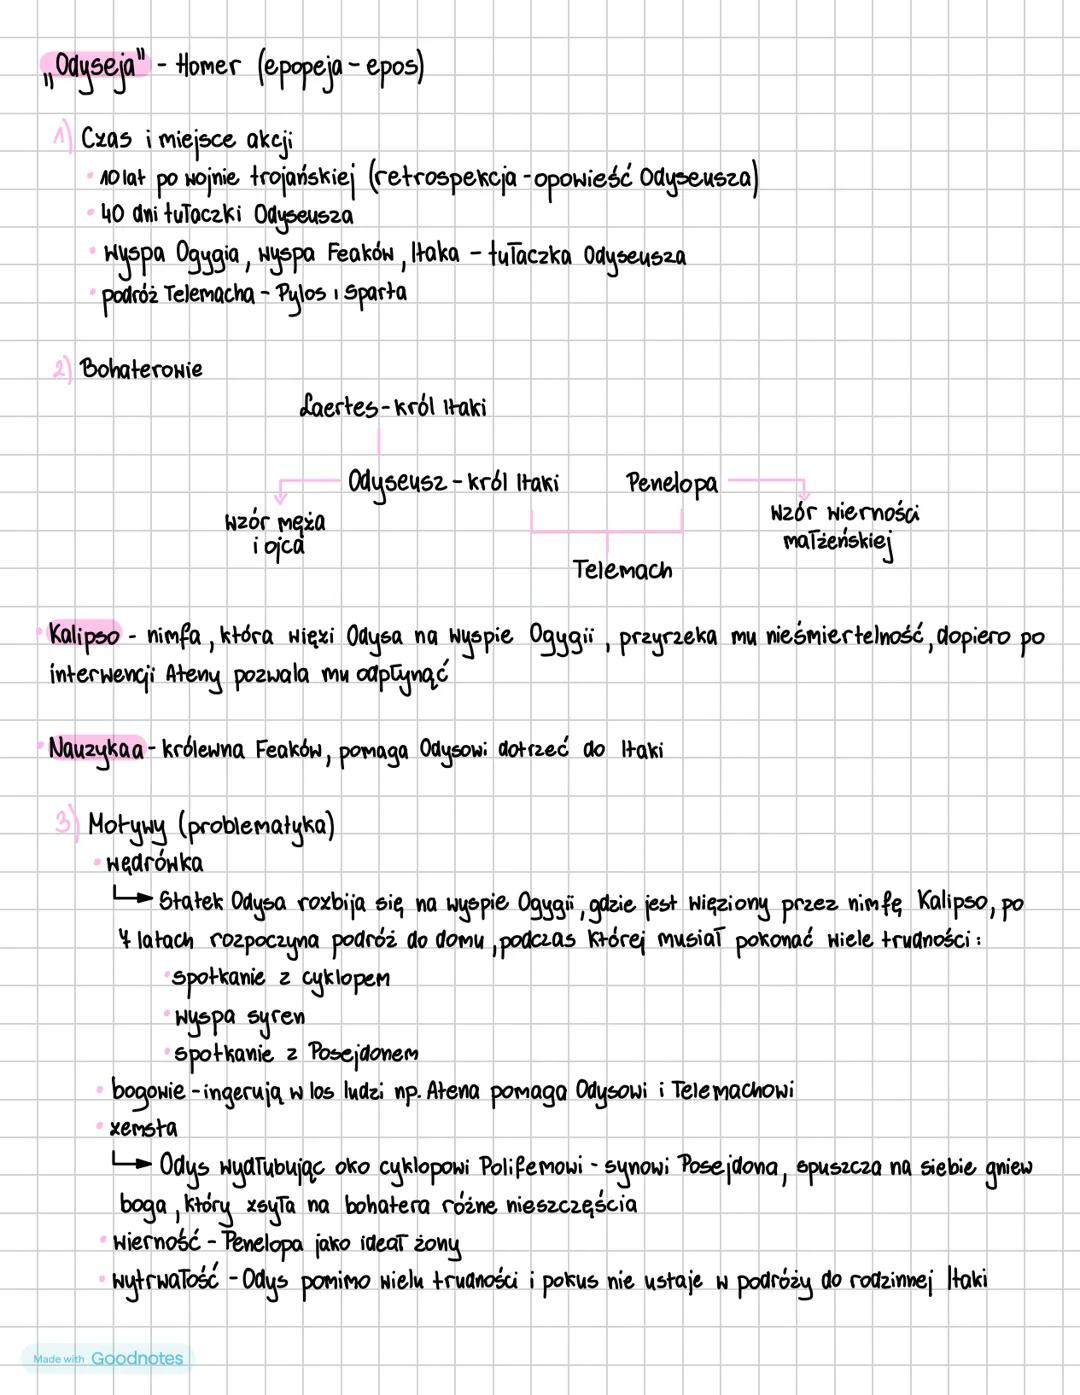 „Odyseja" - Homer (epopeja - epos)
1) Czas i miejsce akcji
• 10 lat po wojnie trojańskiej (retrospekcja - opowieść Odyseusza)
• 40 dni tułaczki Odyseusza
• wyspa Ogygia, wyspa Feaków, Itaka - tułaczka Odyseusza
• podróż Telemacha - Pylos i Sparta
2) Bohaterowie
Laertes - król Itaki
Odyseusz - król Itaki Penelopa
wzór męża
i ojca
wzór wierności
małżeńskiej
Telemach
• Kalipso - nimfa, która więzi Odysa na wyspie Ogygii, przyrzeka mu nieśmiertelność, dopiero po
interwencji Ateny pozwala mu odpłynąć
• Nauzykaa - królewna Feaków, pomaga Odysowi dotrzeć do Itaki
3) Motywy (problematyka)
• wędrówka
↳ Statek Odysa rozbija się na wyspie Ogygii, gdzie jest więziony przez nimfę Kalipso, po
7 latach rozpoczyna podróż do domu, podczas której musiał pokonać wiele trudności:
• spotkanie z cyklopem
• wyspa syren
• spotkanie z Posejdonem
• bogowie - ingerują w los ludzi np. Atena pomaga Odysowi i Telemachowi
• zemsta
↳ Odys wydłubując oko cyklopowi Polifemowi - synowi Posejdona, spuszcza na siebie gniew
boga, który zsyła na bohatera różne nieszczęścia
• wierność - Penelopa jako ideał żony
• wytrwałość - Odys pomimo wielu trudności i pokus nie ustaje w podróży do rodzinnej Itaki
Made with Goodnotes